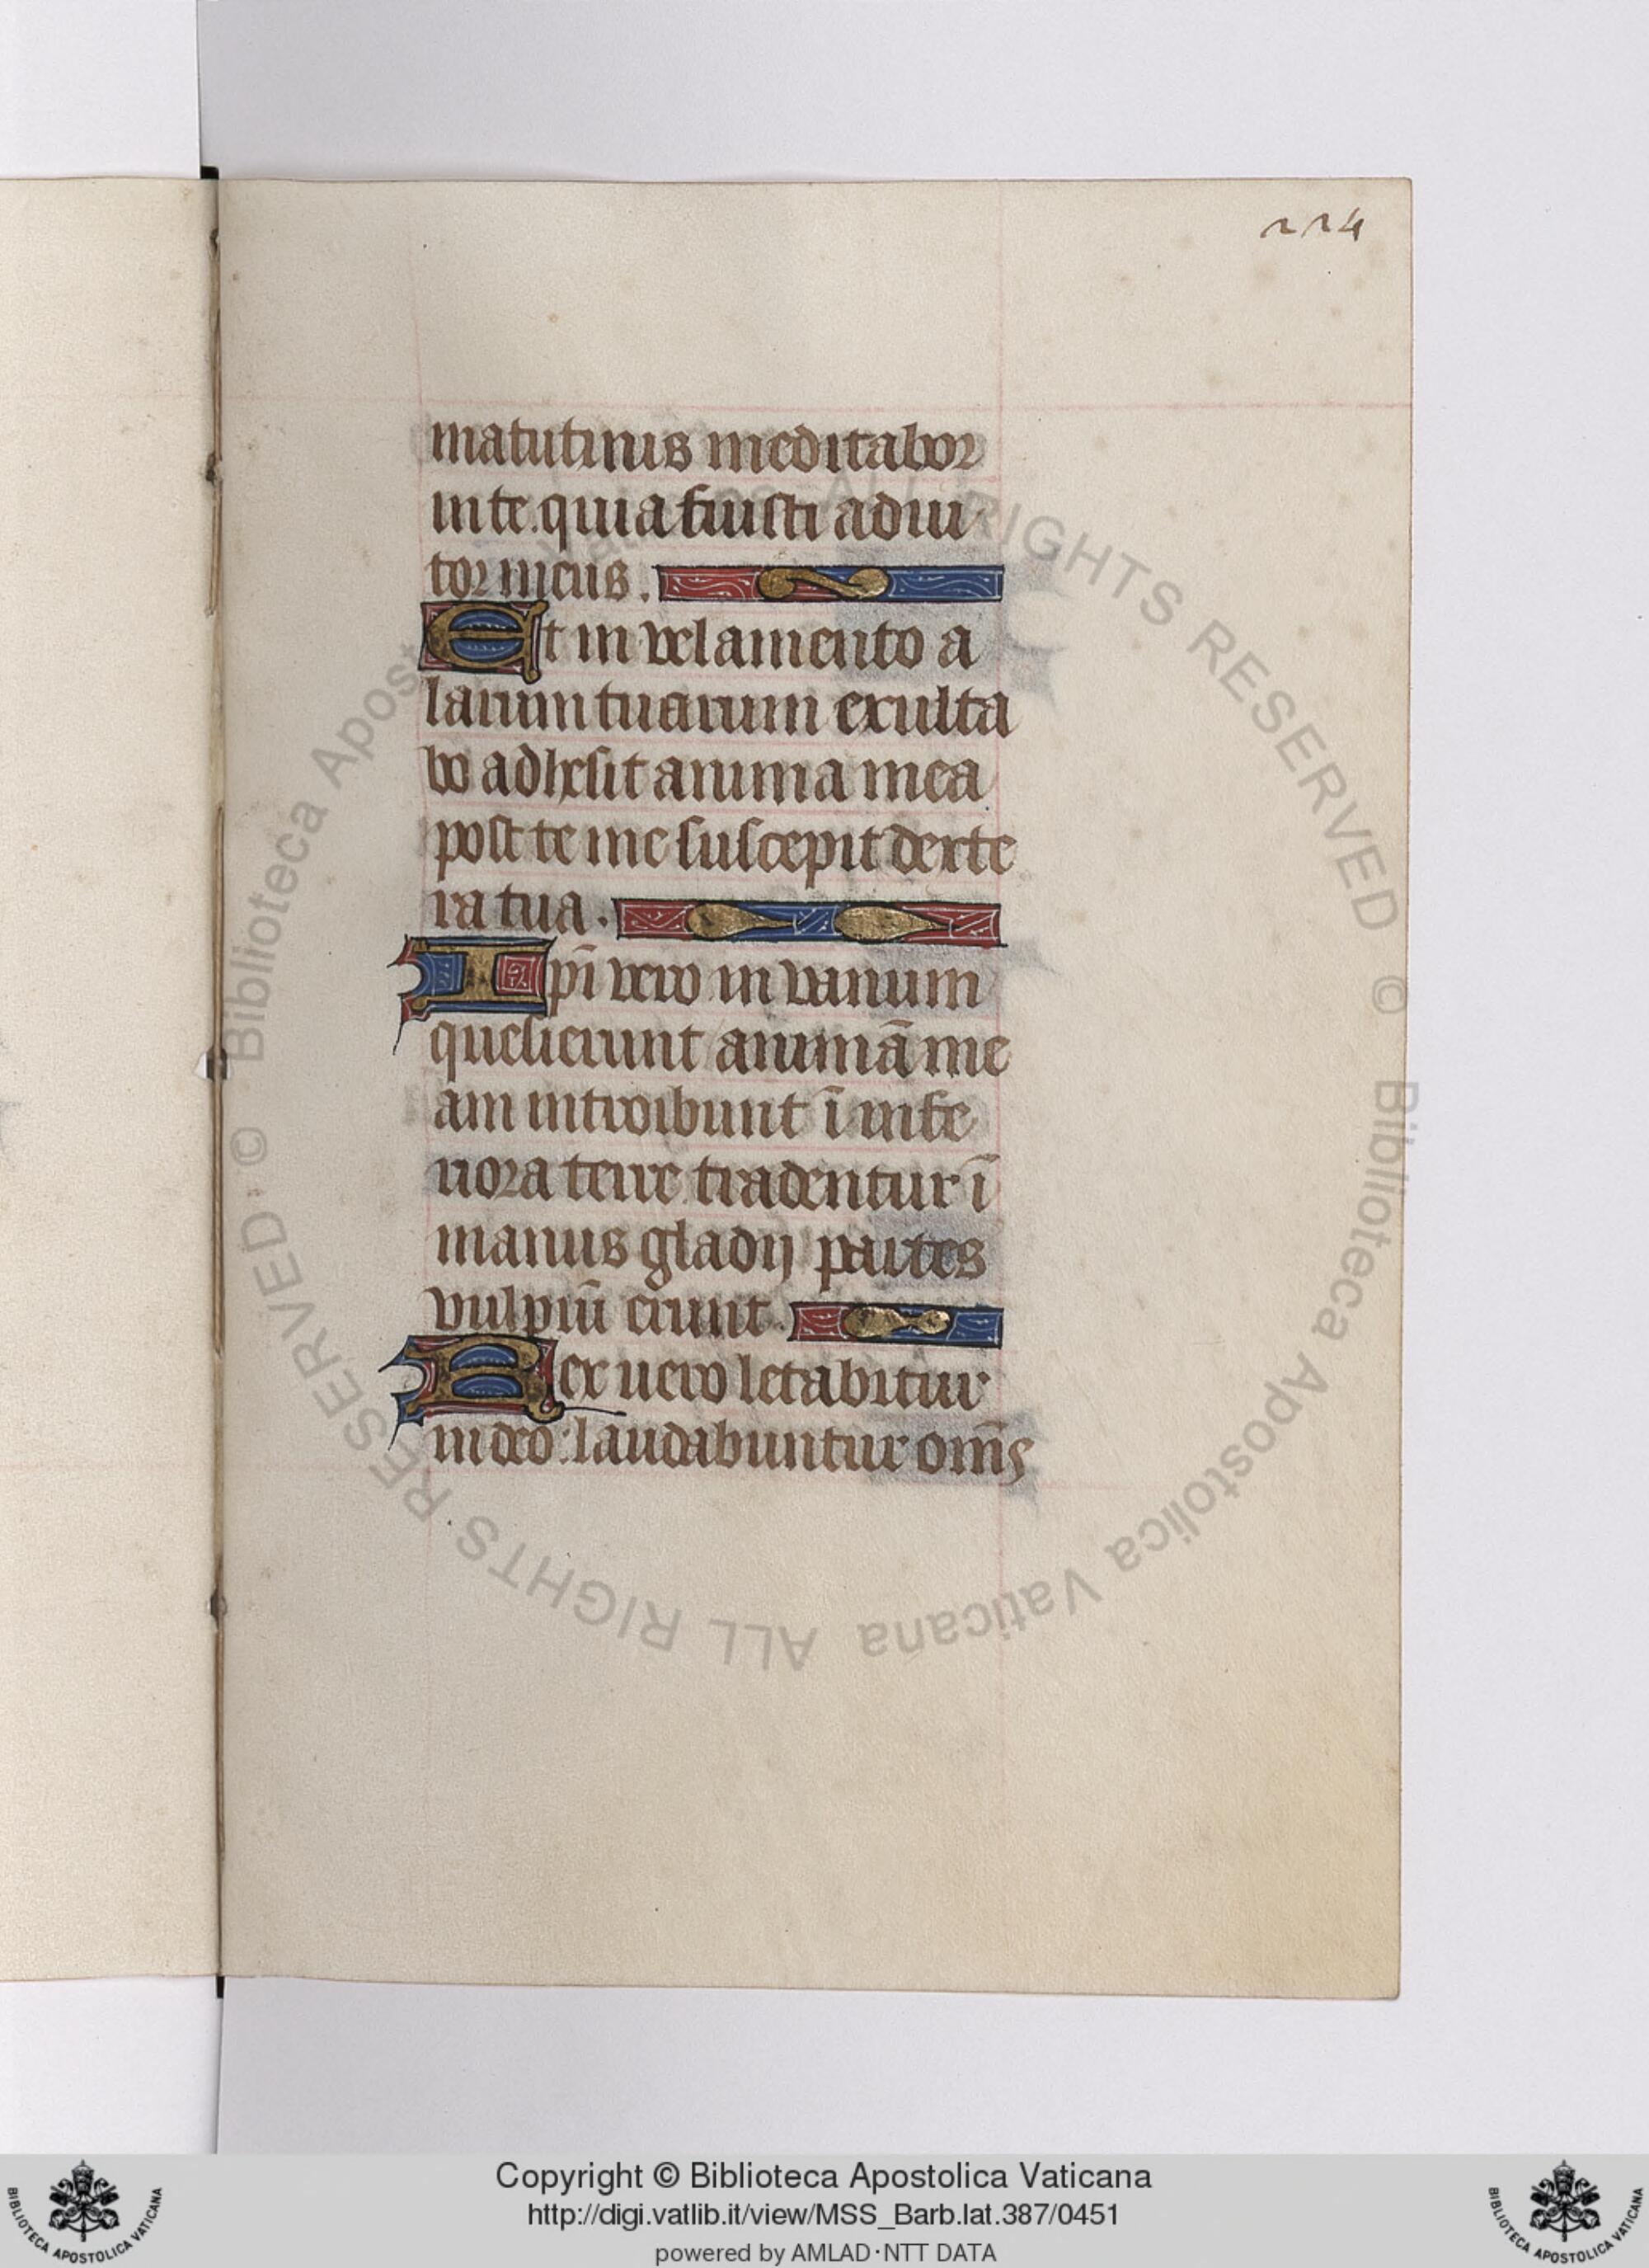 224
matutinis meditabor
in te. quia fuisti adiu
tor meus.
Et in velamento a
larum tuarum exulta
bo adhesit anima mea
post te me suscepit dexte
ra tua.
Ipī vero in vanum
quesierunt animā me
am introibunt ī infe
riora terre tradentur ī
manus gladij partes
vulpiū erunt.
Rex uero letabitur
in deo: laudabuntur om̄s
Copyright © Biblioteca Apostolica Vaticana
http://digi.vatlib.it/view/MSS_Barb.lat.387/0451
powered by AMLAD·NTT DATA
BIBLIOTECA APOSTOLICA VATICANA
BIBLIOTECA APOSTOLICA VATICANA
© Biblioteca Apostolica Vaticana ALL RIGHTS RESERVED
© Biblioteca Apostolica Vaticana ALL RIGHTS RESERVED